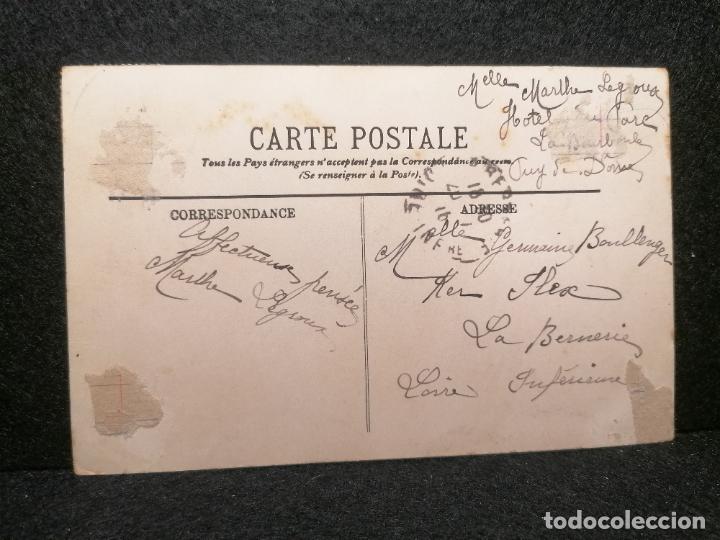 Melle Marthe Legroux
Hotel du Parc
La Bourboule
Puy de Dôme
CARTE POSTALE
Tous les Pays étrangers n'acceptent pas la Correspondance au recto
(Se renseigner à la Poste).
CORRESPONDANCE
ADRESSE
Affectueuse pensée
Marthe Legroux
Melle Germaine Boullenger
Ker Ilex
La Bernerie
Loire Inférieure
todocoleccion.net